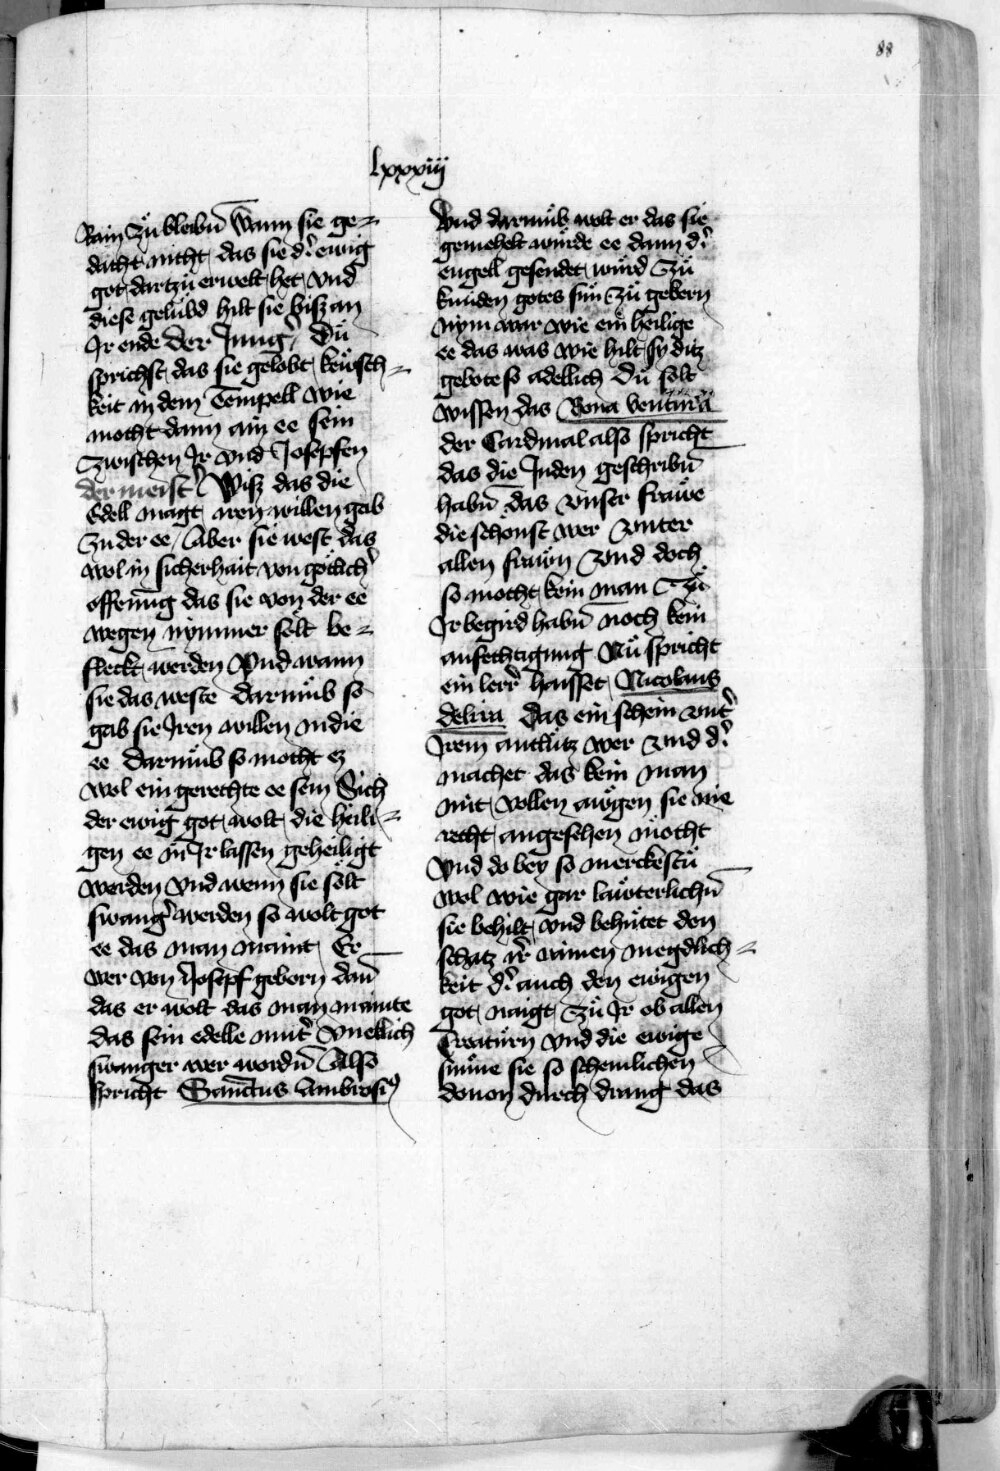 88
lxxxiij
Rain zü bleibn̄ Wann sie ge-
dacht nicht das sie d' ewig
got dartzü erwelt het vnd
diese gelübd hilt sie bisz an
Ir ende Der Jung' Dü
sprichst das sie gelobt keüsch-
keit in dem Tempell wie
mocht dann ain ee sein
Zwischen Ir vnd Josepfen
der meist' Wisz das die
Edell magt iren willen gab
Zu der ee Aber sie west das
wol in sicherhait von götlich'
offenūg das sie von der ee
wegen nymmer solt be-
fleckt werden Vnd wann
sie das weste darumb so
gab sie Iren willen in die
ee darumb so mocht ez
wol ein gerechte ee sein Sich
der ewig got wolt die heili-
gen ee in Ir lassen geheiligt
werden vnd wenn sie solt
swang' werden so wolt got
ee das man maint Er
wer von Josepf geborn dan̄
das er wolt das man mainte
das sein edelle mut' vneelich
swanger wer wordn̄ Also
spricht Sanctus Ambrosi9
Vnd darumb wolt er das sie
gemehelt würde ee dann d'
engell gesendet würd Zü
künden gotes sün zü gebern
Nym war wie ein heilige
ee das was wie hilt sy ditz
gebote so adellich Dü solt
wissen das Bona ventura
der Cardinal also spricht
das die Juden geschribn̄
habn̄ das vnser frawe
die schonst wer vnter
allen frawn Vnd doch
so mocht kein man Zü
Ir begird habn̄ noch kein
anfechtigung Nü spricht
ein lerr' haisset Nicolaus
delira das ein schein vnt'
Irem antlütz wer vnd d'
machet das kein man
mit vollen awgen sie nie
recht angesehen mocht
Vnd do bey so merckestü
wol wie gar lawterlichn̄
sie behilt vnd behütet den
schatz ir' rainen megdlich-
keit d' auch den ewigen
got naigt Zü Ir ob allen
Creatürn vnd die ewige
sunne sie so scheinlichen
douon durch drang das